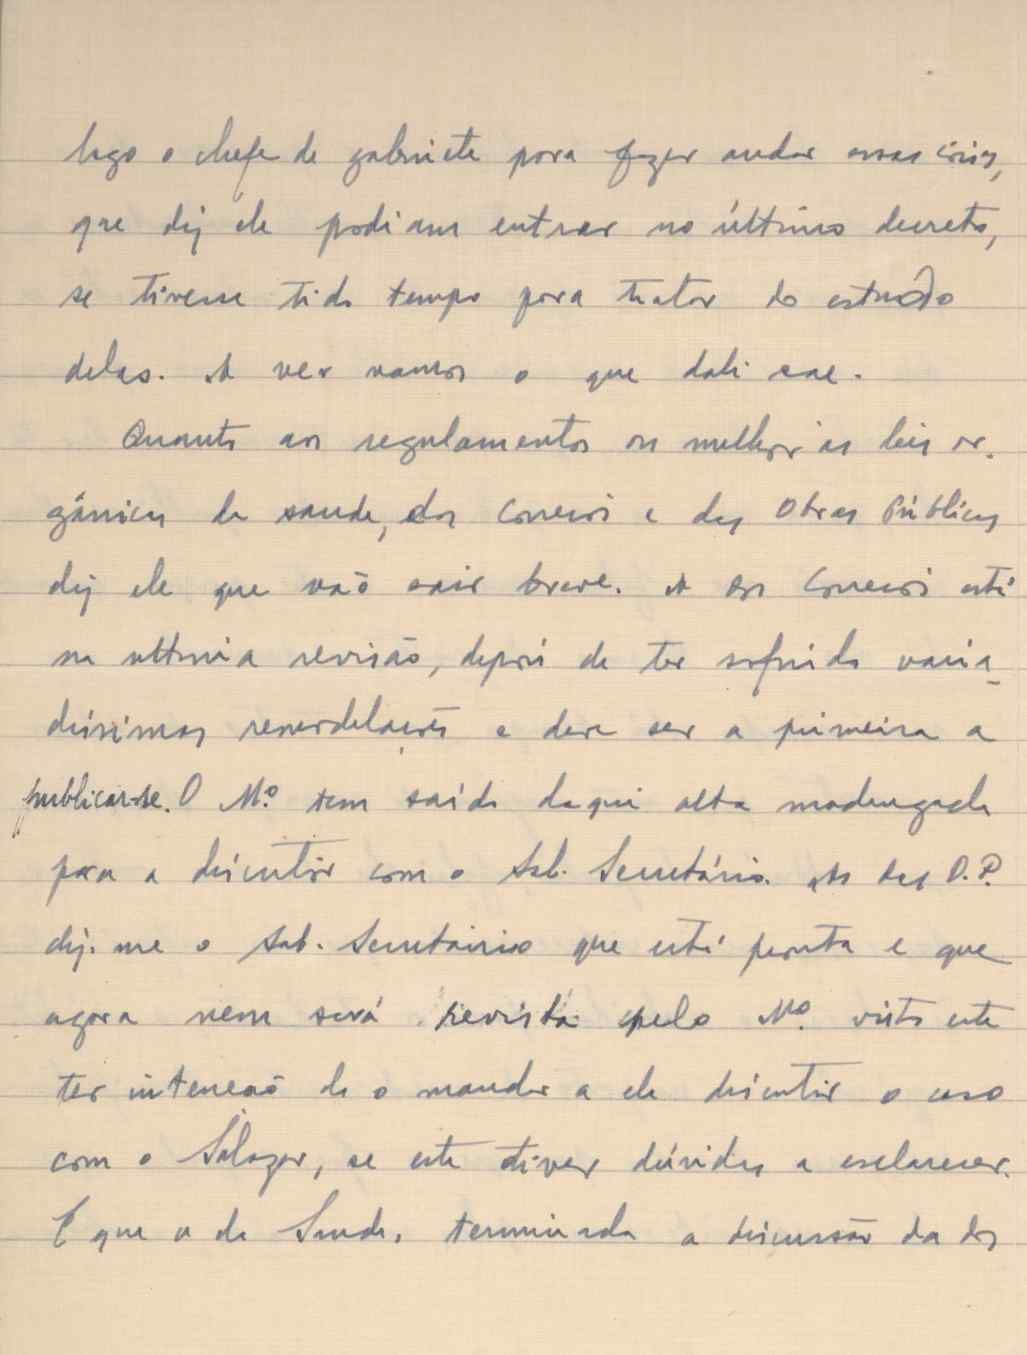 logo o chefe de gabinete para fazer andar essas cóisas,
que diz ele podiam entrar no último decreto,
se tivesse tido tempo para tratar do estudo
delas. A ver vamos o que dali sae.
Quanto aos regulamentos ou melhor as leis or-
gânicas da saude, dos Correios e das Obras Públicas
diz ele que vão sair breve. A dos Correios está
na ultima revisão, depois de ter sofrido varia-
dissimas remodelações e deve ser a primeira a
publicar-se. O Mº. tem saído daqui alta madrugada
para a discutir com o Sub. Secretário. A das O.P.
diz-me o Sub. Secretario que está pronta e que
agora nem será revista pelo Mº. visto este
ter intenção de o mandar a ele discutir o caso
com o Salazar, se este tiver dúvidas a esclarecer.
E que a da Saude, terminada a discussão da dos